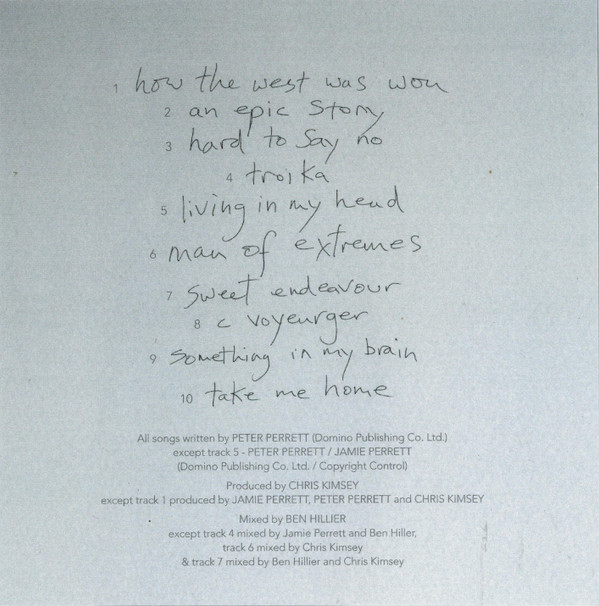 1 how the west was won
2 an epic story
3 hard to say no
4 troika
5 living in my head
6 man of extremes
7 sweet endeavour
8 c voyeurger
9 something in my brain
10 take me home
All songs written by PETER PERRETT (Domino Publishing Co. Ltd.)
except track 5 - PETER PERRETT / JAMIE PERRETT
(Domino Publishing Co. Ltd. / Copyright Control)
Produced by CHRIS KIMSEY
except track 1 produced by JAMIE PERRETT, PETER PERRETT and CHRIS KIMSEY
Mixed by BEN HILLIER
except track 4 mixed by Jamie Perrett and Ben Hiller,
track 6 mixed by Chris Kimsey
& track 7 mixed by Ben Hillier and Chris Kimsey